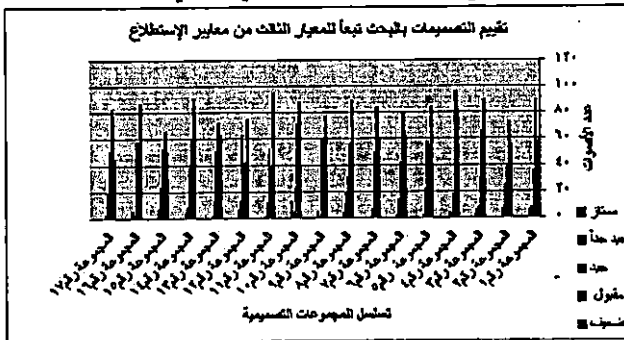 تقييم التصميمات بالبحث تبعاً للمعيار الثالث من معايير الإستطلاع
١٢٠
١٠٠
٨٠
٦٠
٤٠
٢٠
٠
عدد الأصوات
ممتاز
جيد جداً
جيد
مقبول
ضعيف
المجموعة رقم١
المجموعة رقم٢
المجموعة رقم٣
المجموعة رقم٤
المجموعة رقم٥
المجموعة رقم٦
المجموعة رقم٧
المجموعة رقم٨
المجموعة رقم٩
المجموعة رقم١٠
المجموعة رقم١١
المجموعة رقم١٢
المجموعة رقم١٣
المجموعة رقم١٤
المجموعة رقم١٥
المجموعة رقم١٦
المجموعة رقم١٧
تسلسل المجموعات التصميمية